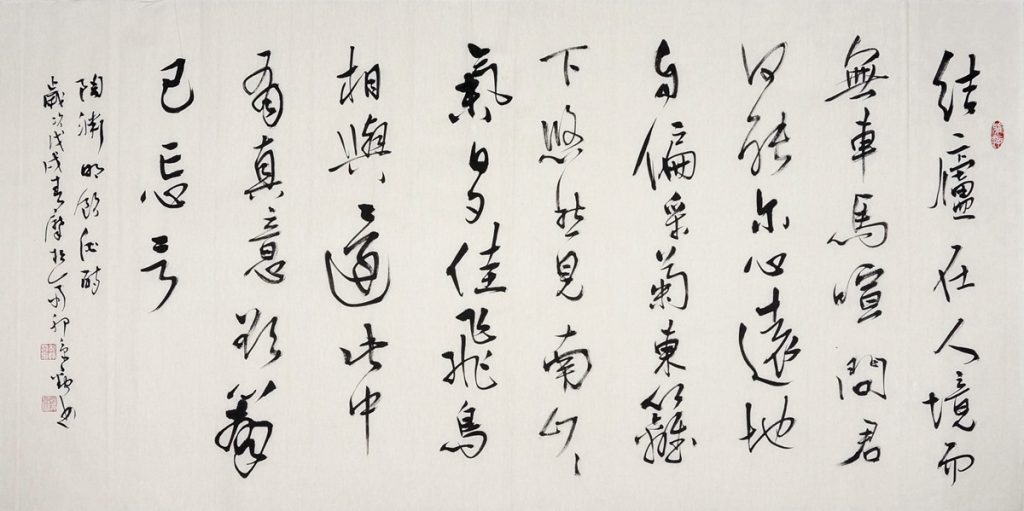 結廬在人境而
無車馬喧問君
何能尔心遠地
自偏采菊東籬
下悠然見南山〻
氣日夕佳飛鳥
相與還此中
有真意欲辨
已忘言
陶淵明飲酒詩
歲次戊戌春